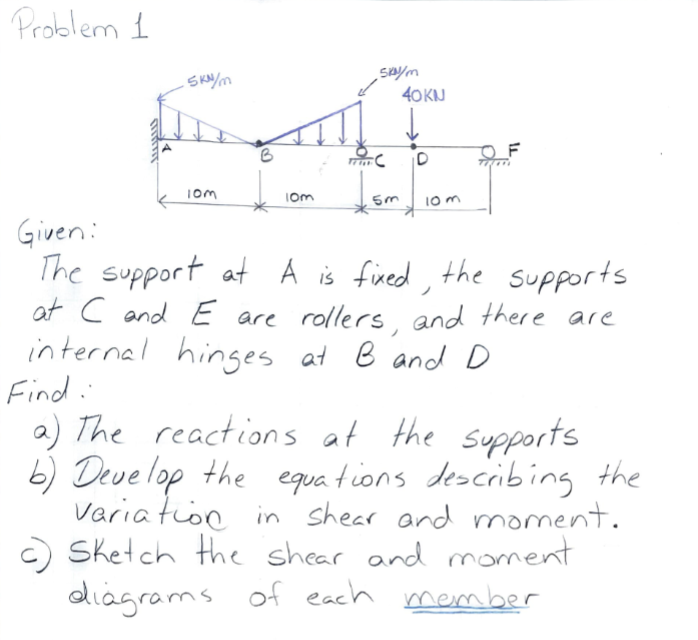 Problem 1
5KN/m
5KN/m
40KN
A
B
C
D
F
10m
10m
5m
10m
Given:
The support at A is fixed, the supports
at C and E are rollers, and there are
internal hinges at B and D
Find:
a) The reactions at the supports
b) Develop the equations describing the
variation in shear and moment.
c) Sketch the shear and moment
diagrams of each member